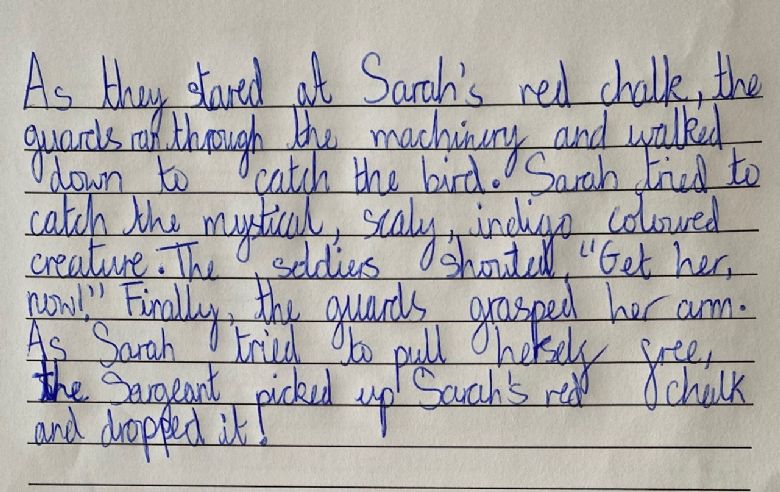 As they stared at Sarah's red chalk, the
guards ran through the machinery and walked
down to catch the bird. Sarah tried to
catch the mystical, scaly, indigo coloured
creature. The soldiers shouted, "Get her,
now!" Finally, the guards grasped her arm.
As Sarah tried to pull herself free,
the Sargeant picked up Sarah's red chalk
and dropped it!